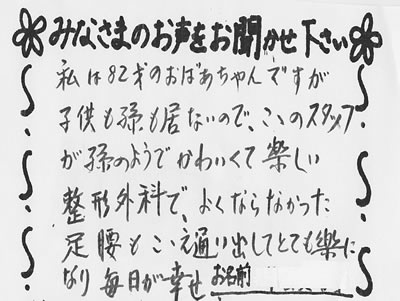 みなさまのお声をお聞かせ下さい
私は82才のおばあちゃんですが
子供も孫も居ないので、ここのスタッフ
が孫のようでかわいくて楽しい
整形外科で、よくならなかった
足腰もここえ通り出してとても楽に
なり毎日が幸せ お名前